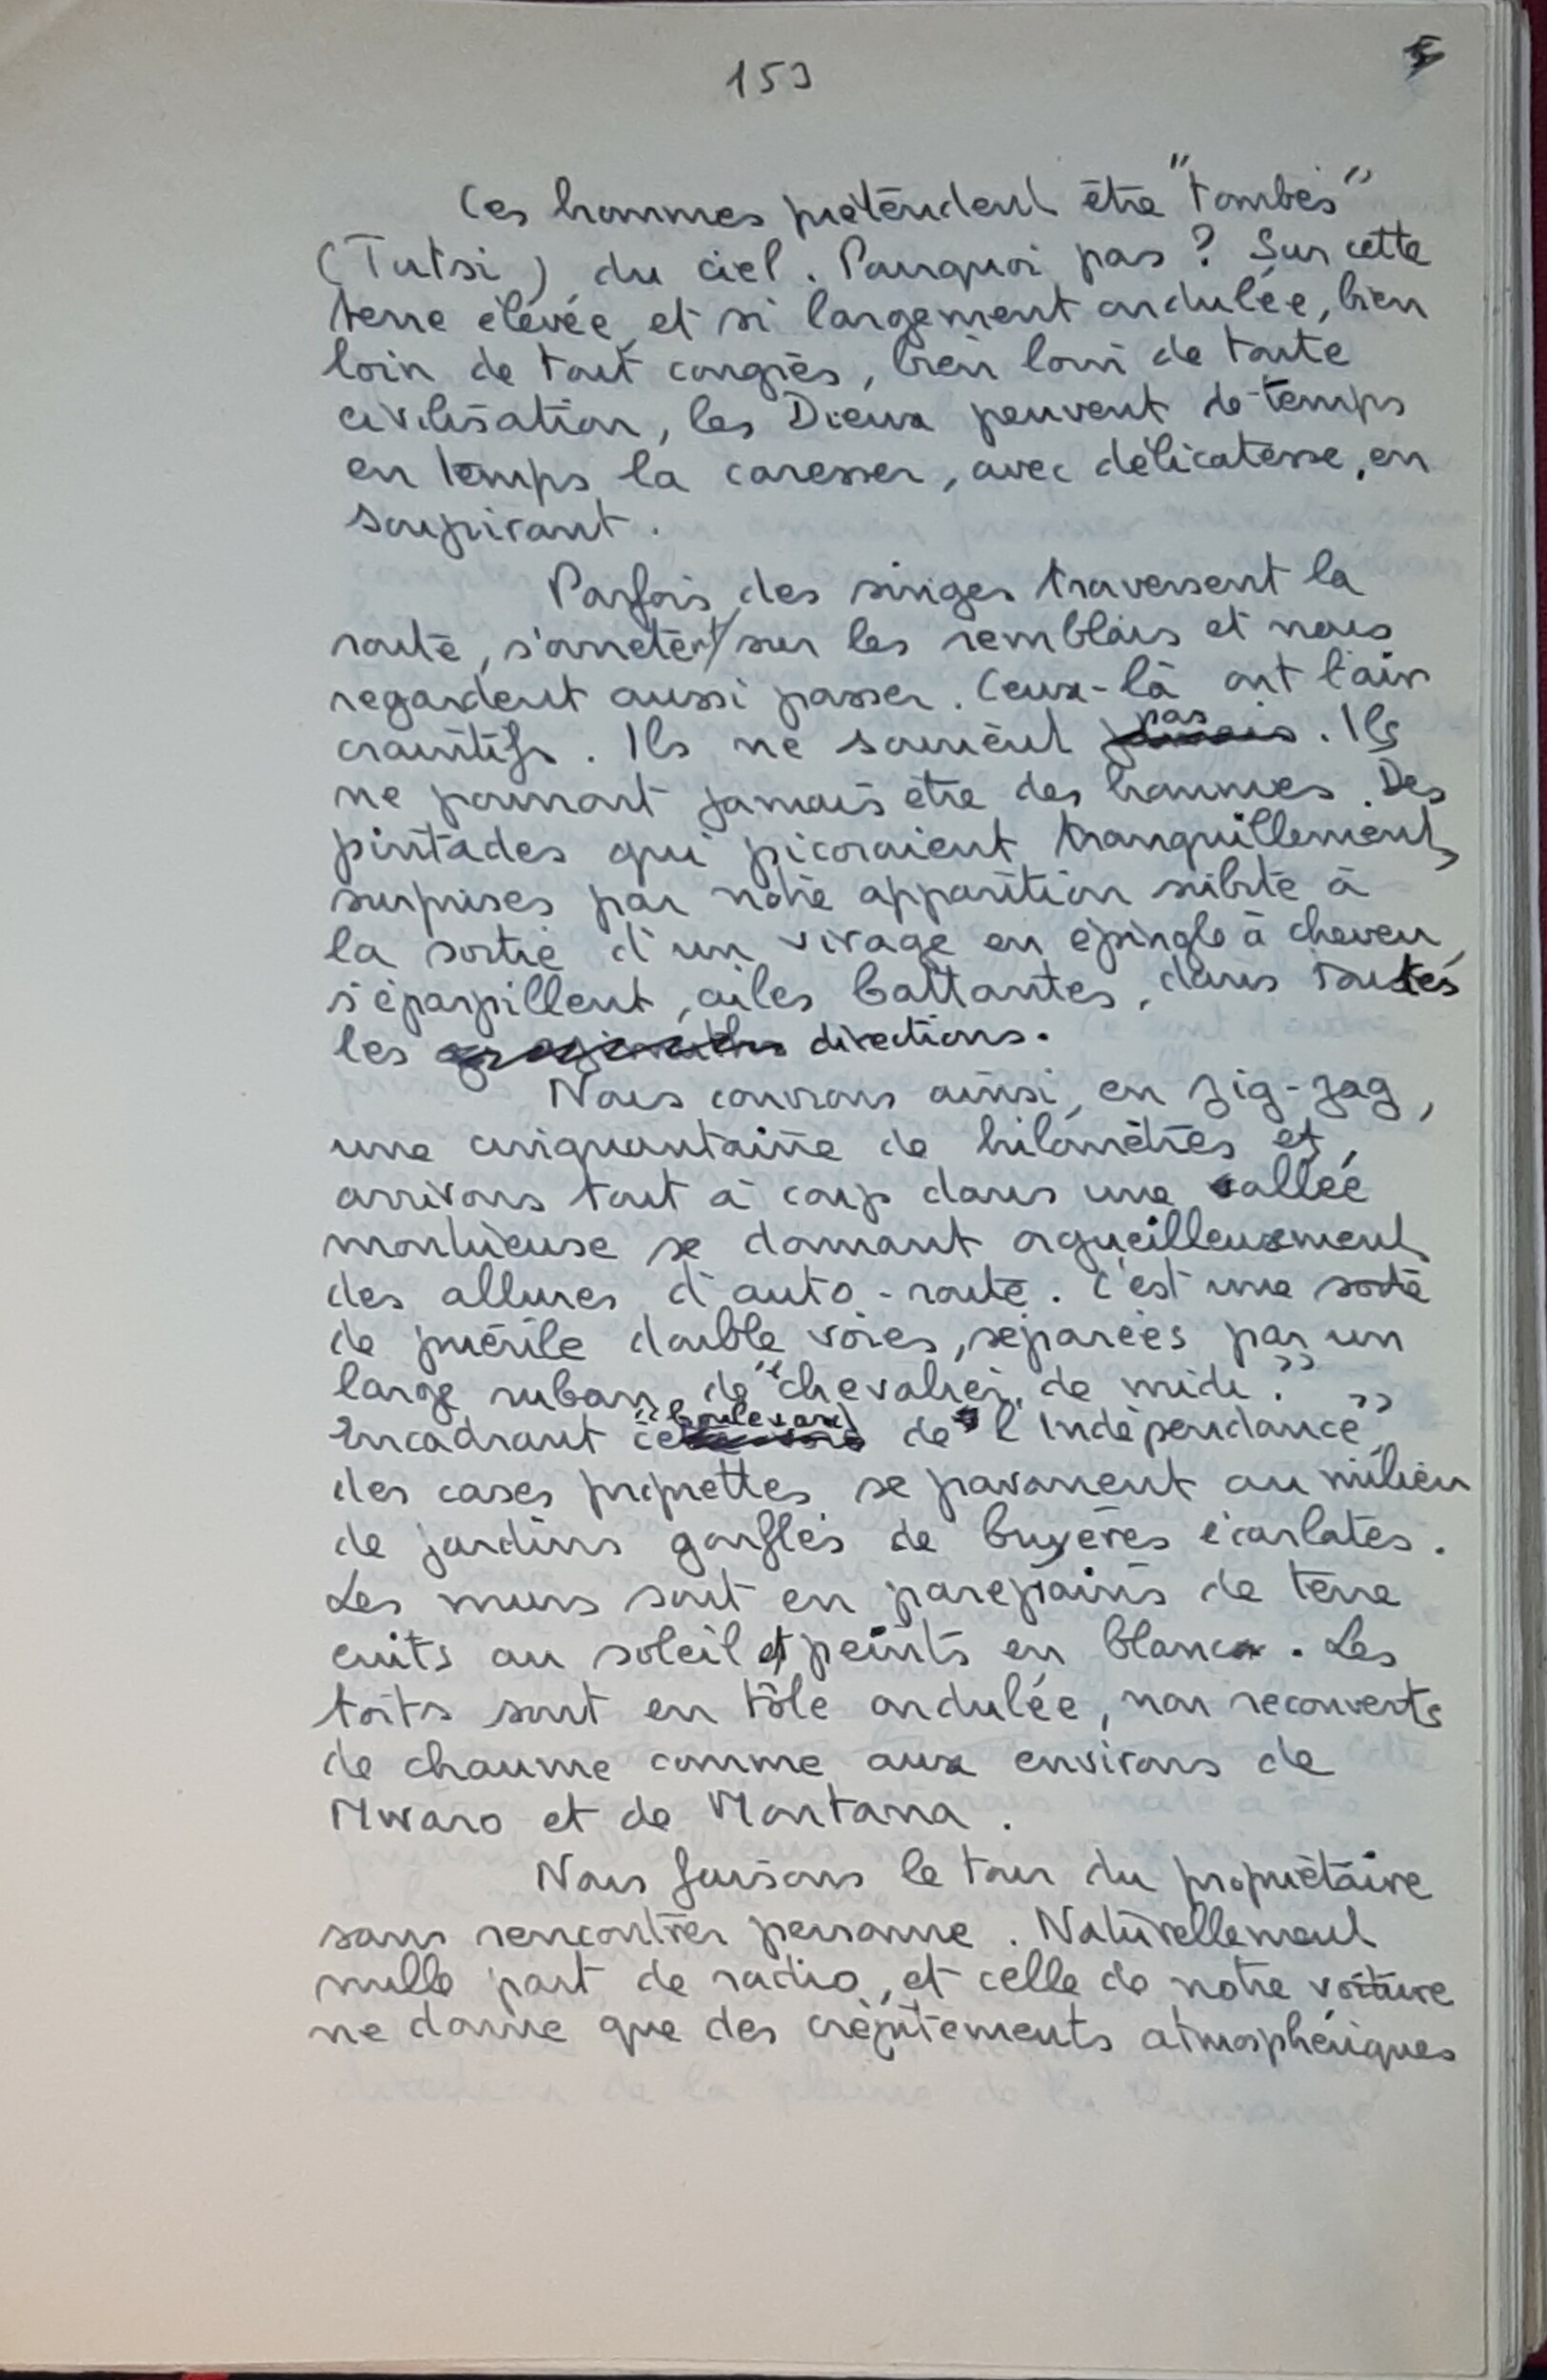 153
Ces hommes prétendent être "tombés"
(Tutsi) du ciel. Pourquoi pas ? Sur cette
terre élevée et si largement ondulée, bien
loin de tout congrès, bien loin de toute
civilisation, les Dieux peuvent de temps
en temps la caresser, avec délicatesse, en
soupirant.
Parfois des singes traversent la
route, s'arrêtent sur les remblais et nous
regardent aussi passer. Ceux-là ont l'air
craintifs. Ils ne sourient pas. Ils
ne pourront jamais être des hommes. Des
pintades qui picoraient tranquillement,
surprises par notre apparition subite à
la sortie d'un virage en épingle à cheveu,
s'éparpillent, ailes battantes, dans toutes
les directions.
Nous couvrons ainsi, en zig-zag,
une cinquantaine de kilomètres et,
arrivons tout à coup dans une vallée
montueuse se donnant orgueilleusement
des allures d'auto-route. C'est une sorte
de puérile double voies, séparées par un
large ruban de "chevalier de midi."
Encadrant ce "boulevard de l'indépendance",
des cases proprettes se pavanent au milieu
de jardins gonflés de bruyères écarlates.
Les murs sont en parepains de terre
cuits au soleil et peints en blanc. Les
toits sont en tôle ondulée, non recouverts
de chaume comme aux environs de
Mwaro et de Montana.
Nous faisons le tour du propriétaire
sans rencontrer personne. Naturellement
nulle part de radio, et celle de notre voiture
ne donne que des crépitements atmosphériques